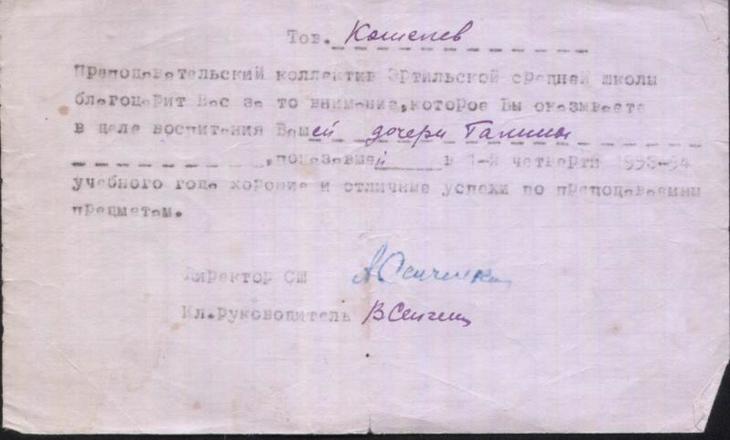 Тов. Кошелев
Преподавательский коллектив Эртильской средней школы
благодарит Вас за то внимание, которое Вы оказываете
в деле воспитания Вашей дочери Галины
, показавшей в 1-й четверти 1953-54
учебного года хорошие и отличные успехи по преподаваемым
предметам.
Директор СШ
Кл.руководитель